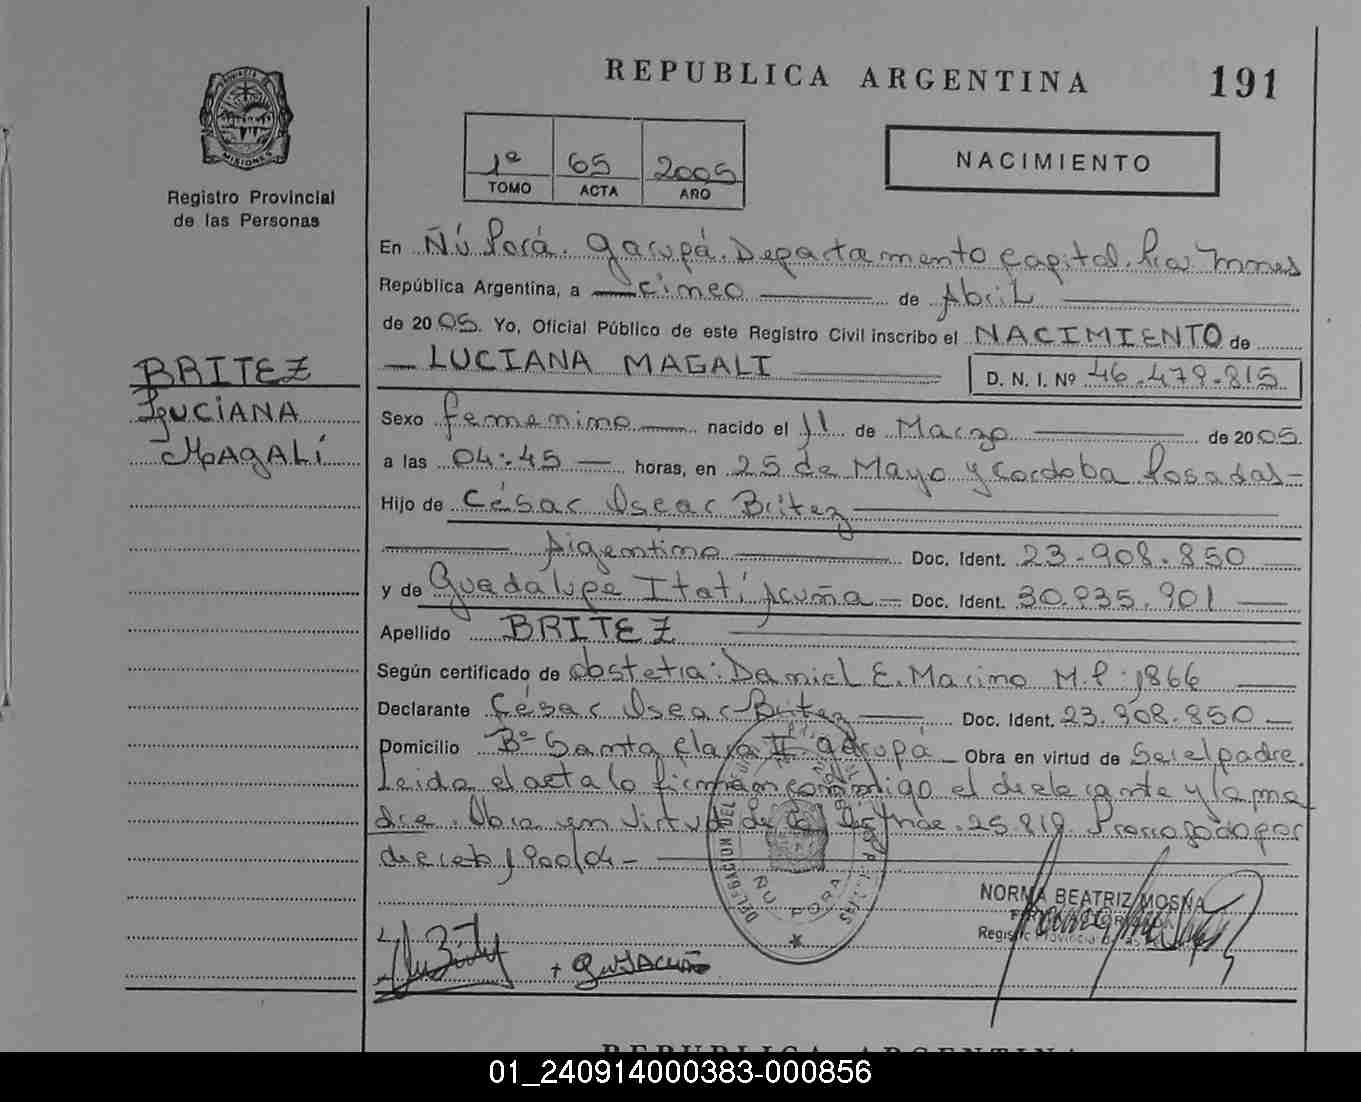 REPUBLICA ARGENTINA 191
MISIONES
Registro Provincial
de las Personas
1ª 65 2005
TOMO ACTA AÑO
NACIMIENTO
En Ñú Porá. Garupá. Departamento Capital. Pcia Mnes
República Argentina, a cinco de Abril
de 2005. Yo, Oficial Público de este Registro Civil inscribo el NACIMIENTO de
LUCIANA MAGALI D. N. I. Nº 46.479.815
BRITEZ
LUCIANA
MAGALÍ
Sexo femenino nacido el 11 de Marzo de 2005
a las 04:45 horas, en 25 de Mayo y Cordoba Posadas
Hijo de César Oscar Britez
Argentino Doc. Ident. 23.908.850
y de Guadalupe Itatí Acuña Doc. Ident. 30.935.901
Apellido BRITEZ
Según certificado de obstetra: Daniel E. Marino M.P: 1866
Declarante César Oscar Britez Doc. Ident. 23.908.850
Domicilio Bº Santa Clara II. Garupá Obra en virtud de Ser el padre.
Leida el acta lo firman conmigo el declarante y la ma
dre. Obra en virtud de la 25.819 Prorrogado por
decreto 1900/04
DELEGACION DEL
ÑU PORA
NORMA BEATRIZ MOSNA
+ Gu Acuña
REPUBLICA ARGENTINA
01_240914000383-000856